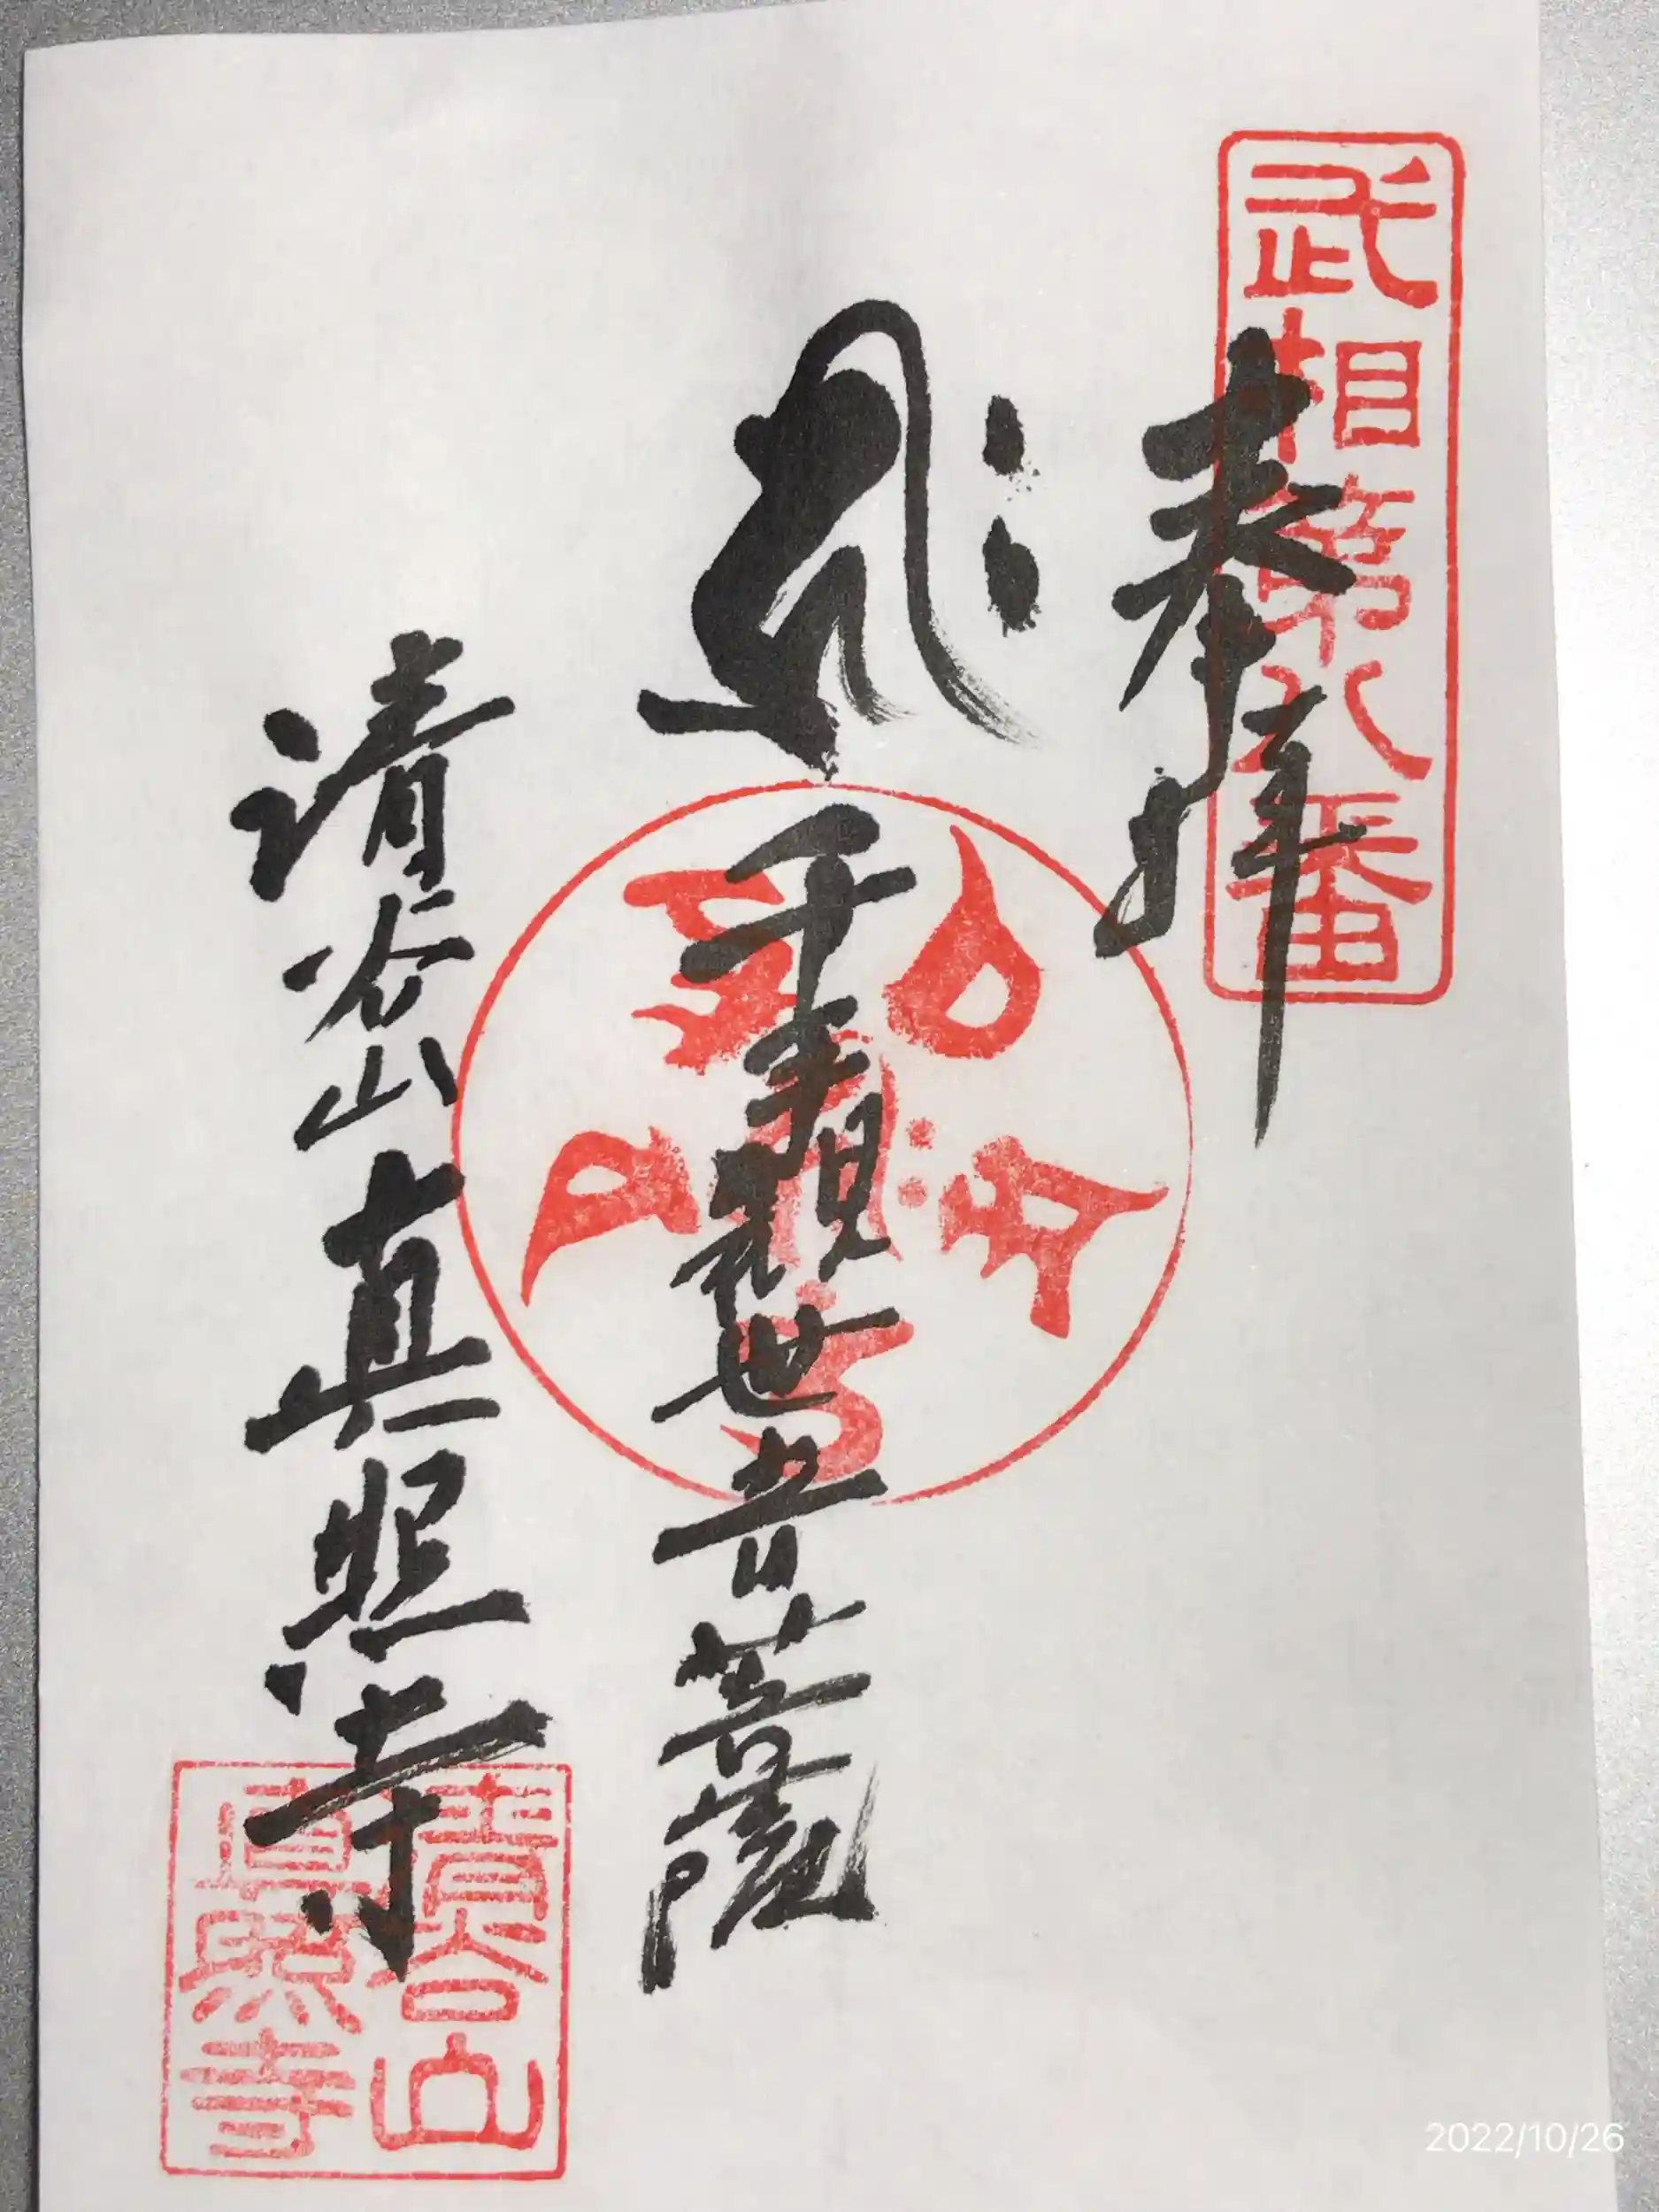 武相第八番
奉拝
千手観世音菩薩
清谷山真照寺
清谷山
真照寺
2022/10/26